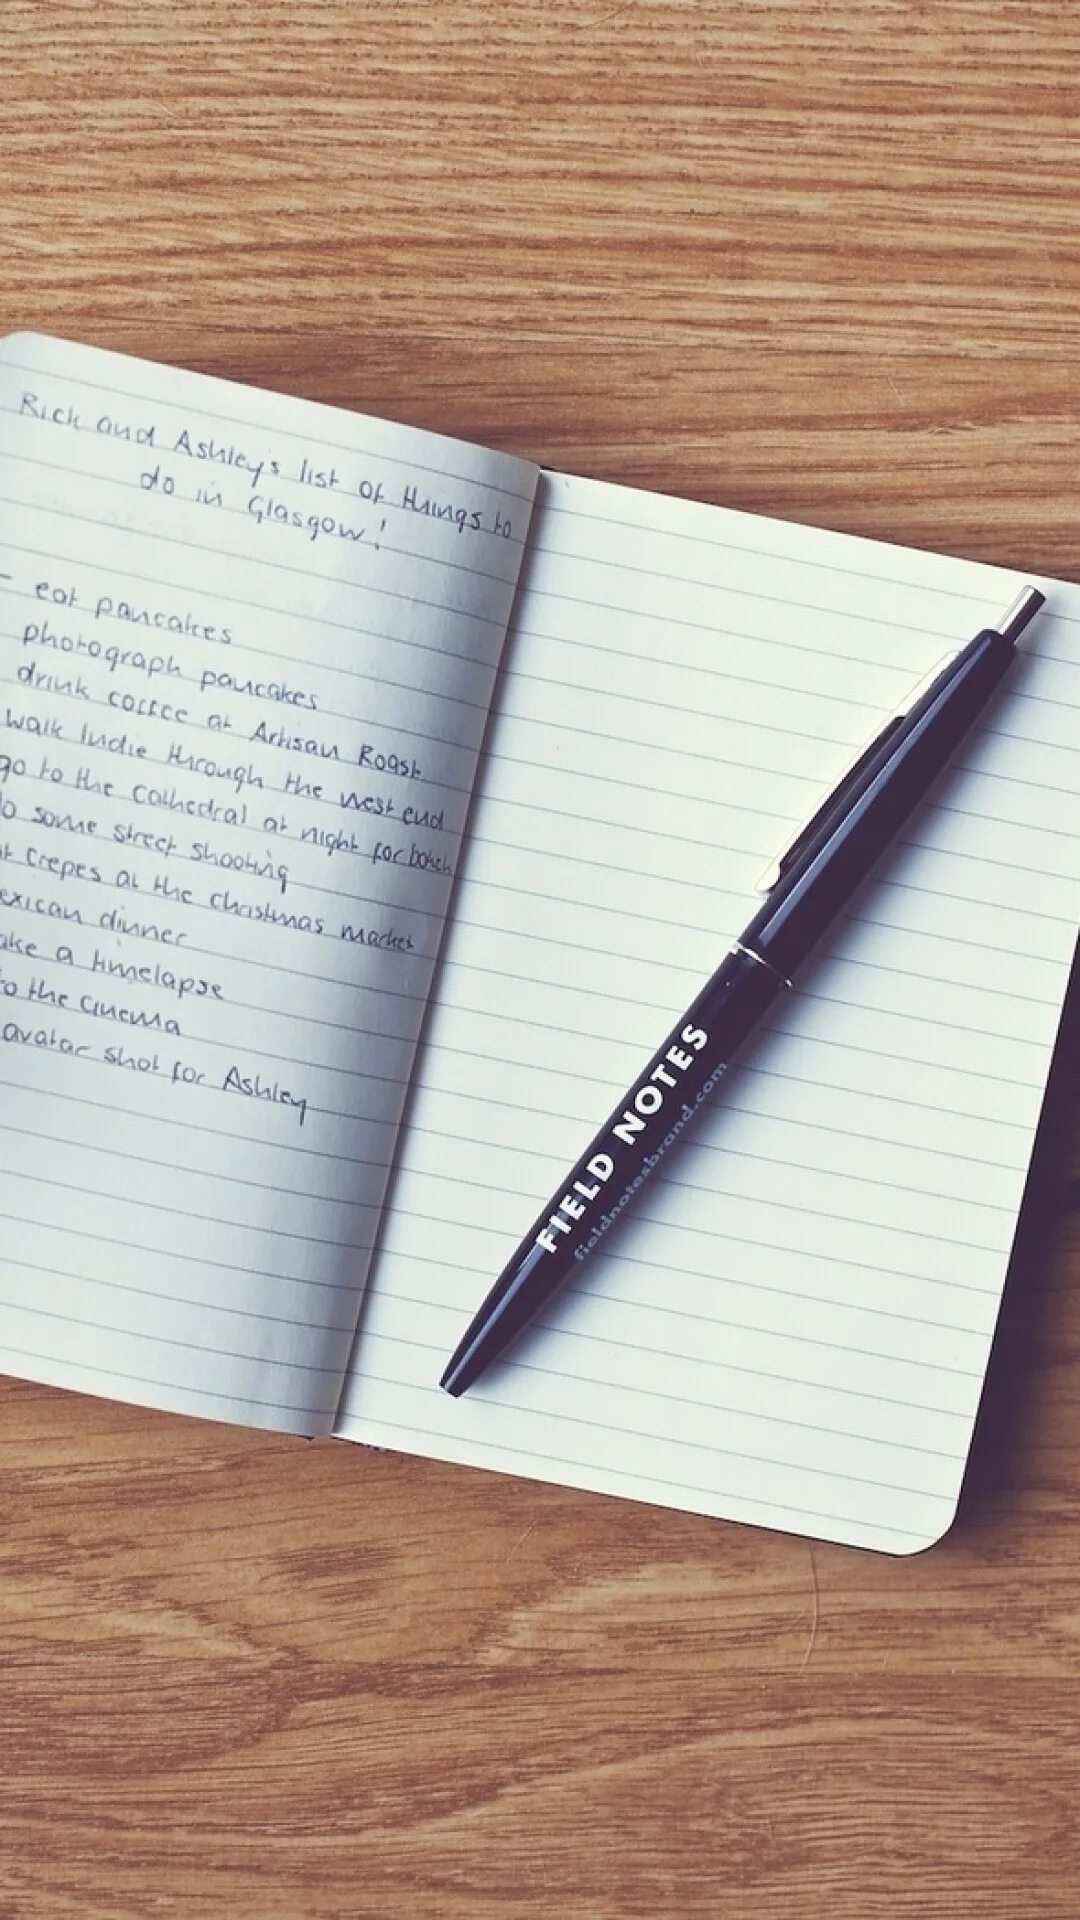 Rick and Ashley's list of things to
do in Glasgow!
- eat pancakes
photograph pancakes
drink coffee at Artisan Roast
walk Indie through the west end
go to the cathedral at night for bokeh
do some street shooting
crepes at the christmas market
dinner
a timelapse
to the cinema
avatar shot for Ashley
FIELD NOTES
fieldnotesbrand.com